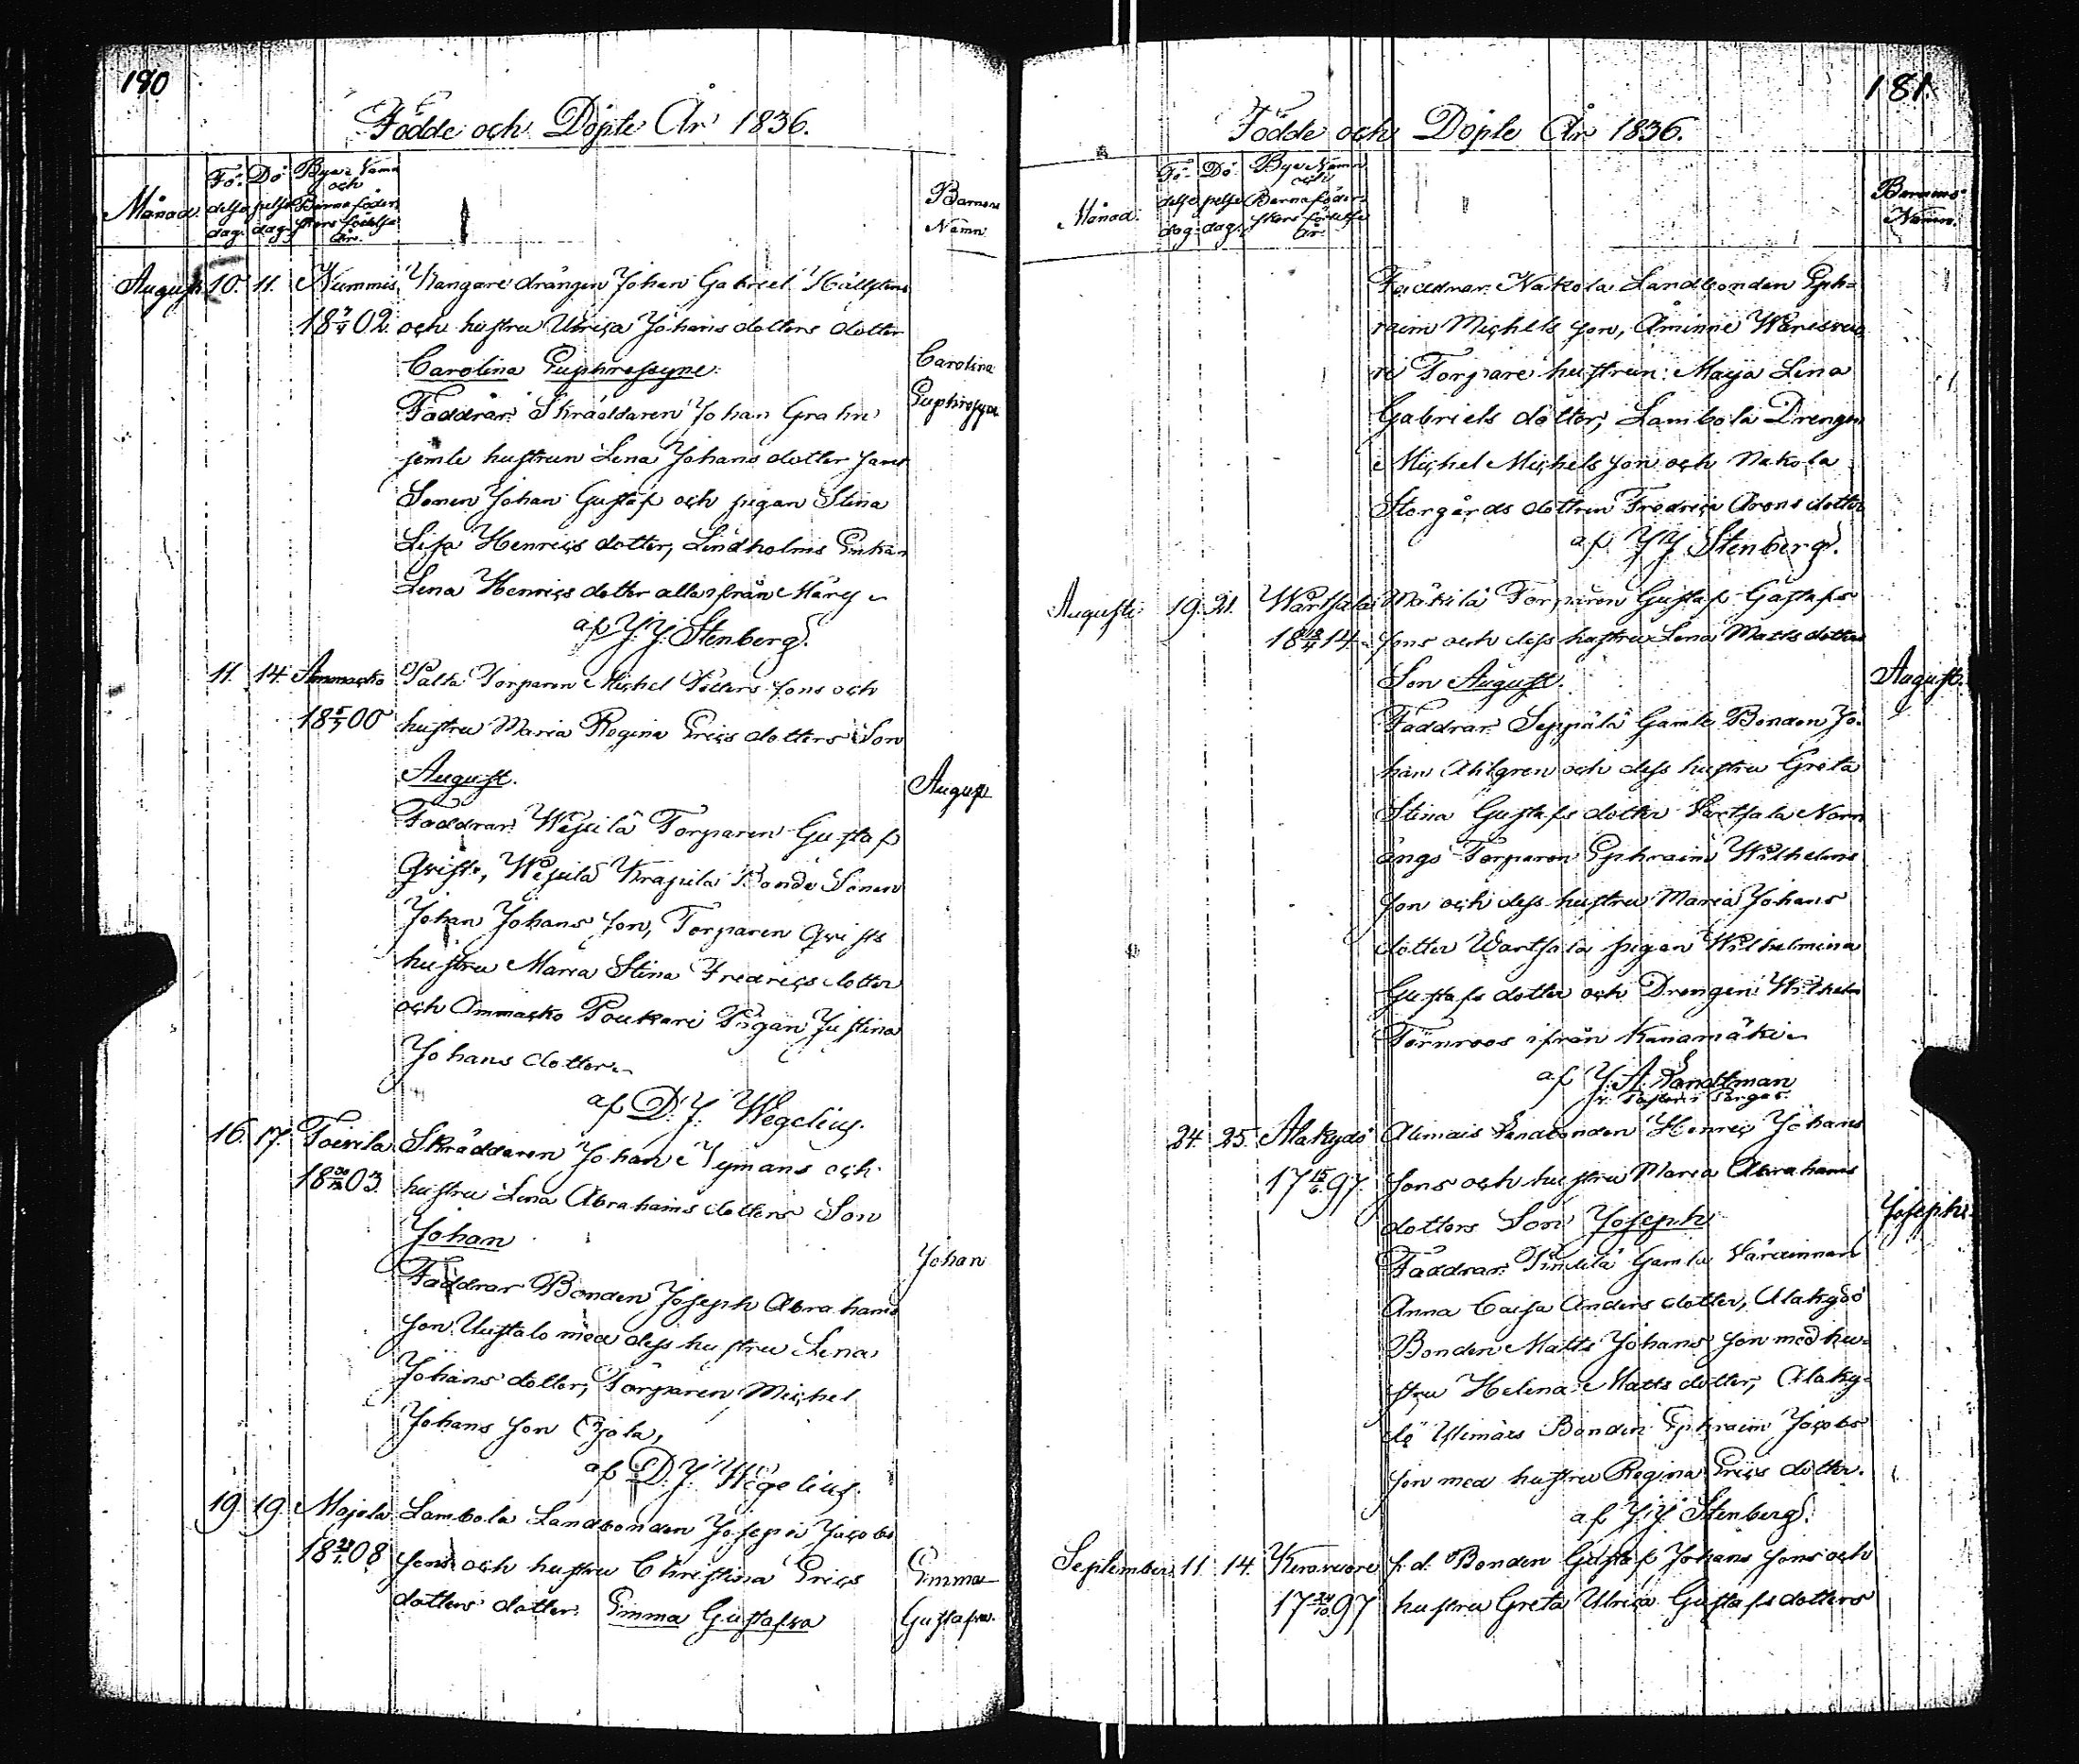 180
Födde och Döpte År 1836.
Månad. Fö-delse dag. Dö-pelse dag. Byars Namn och Barnaföderskors födelse År. Barnens Namn
August 10. 11. Nummis, Kangare drängen Johan Gabriel Hällsten
18 02. och hustru Ulrica Johans dotters dotter
Carolina Euphrosyne. Carolina Euphrosyne
Faddrar: Skräddaren Johan Grahn
jemte hustrun Lena Johans dotter samt
Sonen Johan Gustaf och pigan Stina
Lisa Henrics dotter, Lindholms Enkan
Lena Henrics dotter alla ifrån Märy
af J. J. Stenberg.
11. 14. Ammasko Palta Torparen Michel Petters sons och
18 5/7 00 hustru Maria Regina Erics dotters Son
August. August
Faddrar: Wesilä Torparen Gustaf
Qvist, Wesilä Krapila Bonde Sonen
Johan Johans son, Torparen Qvists
hustru Maria Stina Fredrics dotter
och Ammasko Poukari Pigan Justina
Johans dotter
af D. J. Wegelius.
16. 17. Toivila Skräddaren Johan Nymans och
18 03. hustru Lena Abrahams dotters Son
Johan Johan
Faddrar Bonden Joseph Abrahams
son Uustalo med dess hustru Lena
Johans dotter, Torparen Michel
Johans son Ojola,
af D. J. Wegelius.
19. 19. Majala Lambola Landbonden Joseph Jacobs
18 08 sons och hustru Christina Erics
dotters dotter: Emma Gustafva Emma Gustafva.
181.
Födde och Döpte År 1836.
Månad. Fö-delse dag. Dö-pelse dag. Byars Namn och Barnaföderskors födelse År. Barnens Namn.
Faddrar: Nakola Landbonden Eph-
raim Michels son, Åminne
Torpare hustrun: Maja Lina
Gabriels dotter, Lambola Drengen
Michel Michels son och Nakola
Storgårds dottren Fredrica Arons dotter
af J. J. Stenberg.
Augusti 19. 21. Wartsala Mäkilä Torparen Gustaf Gustafs
18 14. sons och dess hustru Lena Matts dotters
Son August. August.
Faddrar: Seppälä Gamle Bonden Jo-
han Ahlgren och dess hustru Greta
Stina Gustafs dotter Wartsala Norr
ängs Torparen Ephraim Wilhelms
son och dess hustru Maria Johans
dotter Wartsala pigan Wilhelmina
Gustafs dotter och Drengen Wilhelm
Törnroos ifrån Kanamäki
af J. A. Sandtman
24. 25. Alakydö Alimais Landbonden Henric Johans
17 15/6 97. sons och hustru Maria Abrahams
dotters Son Joseph Joseph.
Faddrar: Gamla Värdinnan
Anna Caisa Anders dotter, Alakydö
Bonden Matts Johans son med hu-
stru Helena Matts dotter, Alaky-
dö Ylimäis Bonden Ephraim Jacobs
son med hustru Regina Erics dotter.
af J. J. Stenberg.
September 11. 14. Kerovuore f. d. Bonden Gustaf Johans sons och
17 97 hustru Greta Ulrica Gustafs dotters